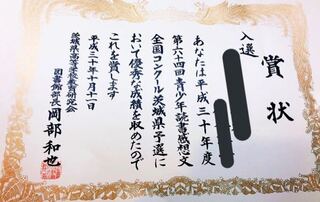 賞状
入選
あなたは平成三十年度
第六十四回青少年読書感想文
全国コンクール茨城県予選に
おいて優秀な成績を収めたので
これを賞します
平成三十年十月十一日
茨城県高等学校教育研究会
図書館部長 岡部和也